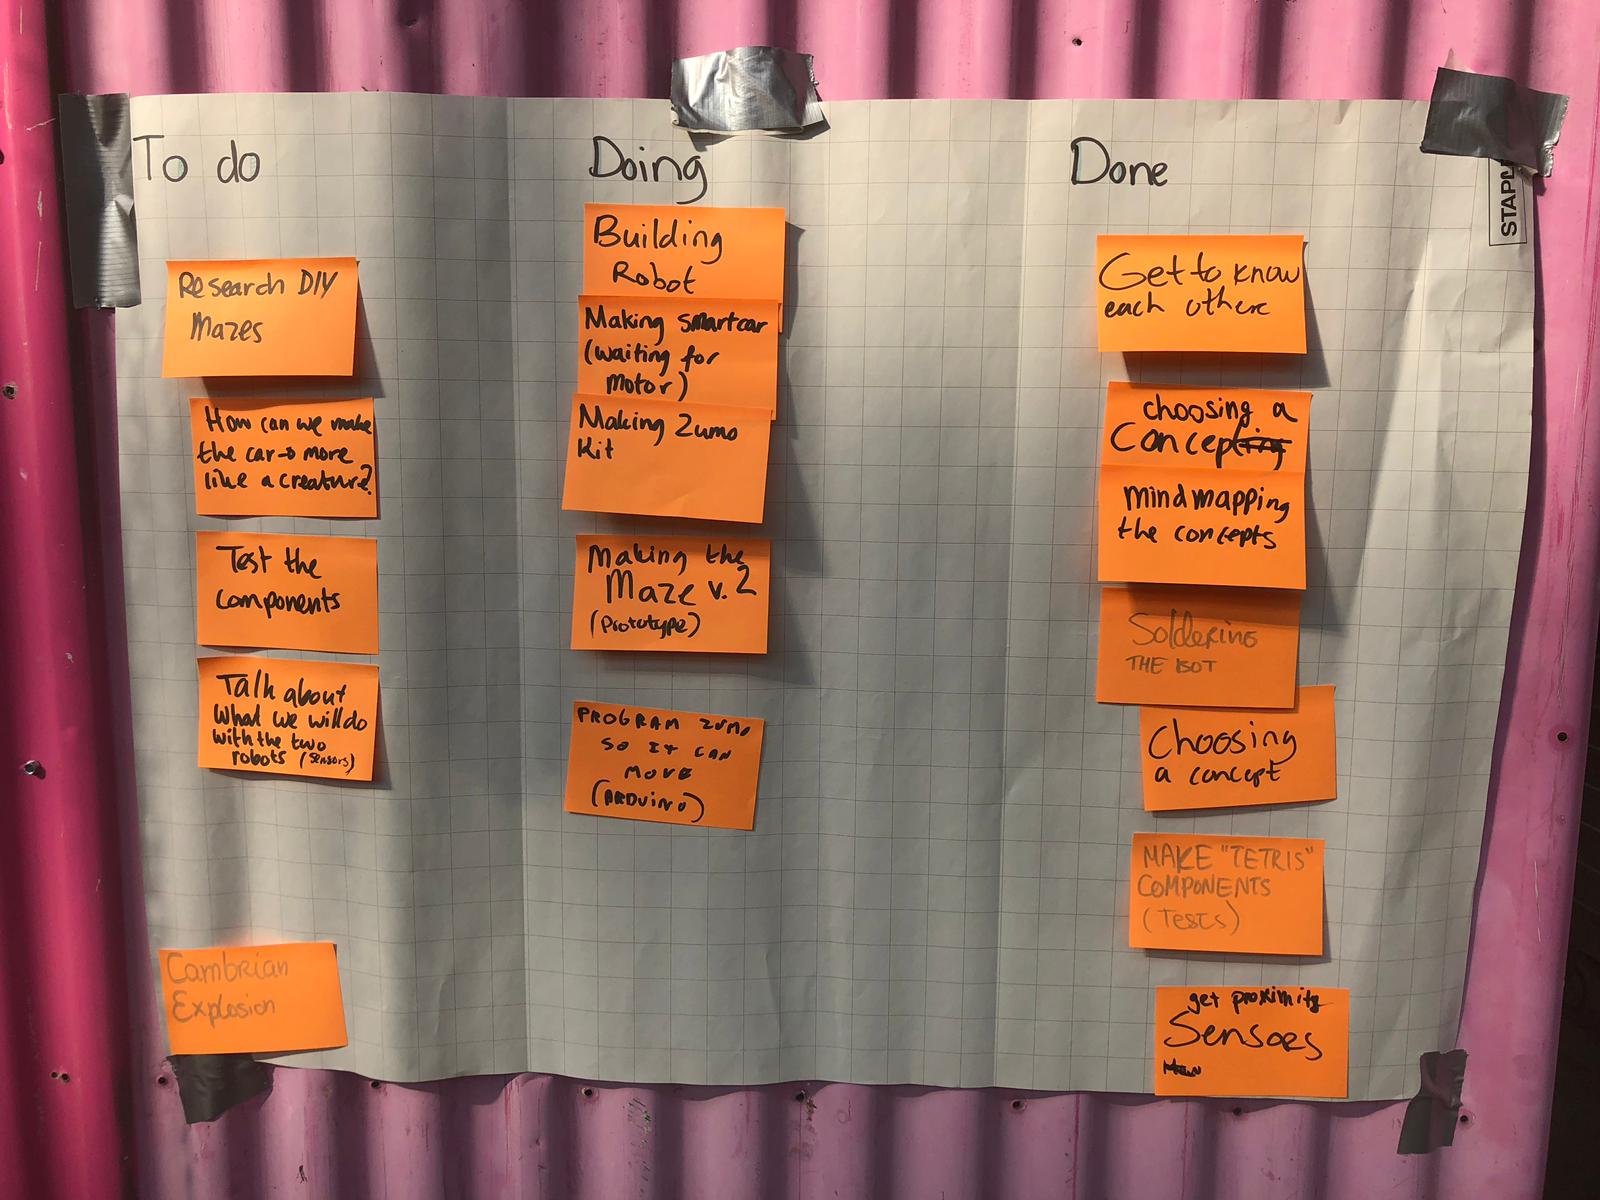 To do
Research DIY
Mazes
How can we make
the car → more
like a creature?
Test the
components
Talk about
what we will do
with the two
robots (sensors)
Cambrian
Explosion
Doing
Building
Robot
Making smartcar
(waiting for
motor)
Making Zumo
Kit
Making the
Maze v.2
(Prototype)
PROGRAM ZUMO
SO IT CAN
MOVE
(ARDUINO)
Done
Get to know
each other
choosing a
Concepting
mindmapping
the concepts
Soldering
THE BOT
Choosing
a concept
MAKE "TETRIS"
COMPONENTS
(TESTS)
get proximity
Sensors